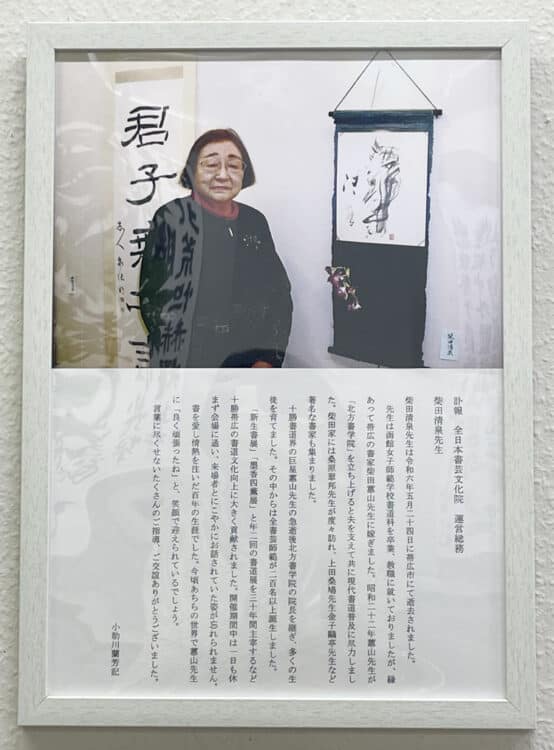 君子
柴田清泉
訃報　全日本書芸文化院　運営総務
柴田清泉先生
柴田清泉先生は令和六年五月二十四日に帯広市にて逝去されました。
先生は函館女子師範学校書道科を卒業、教職に就いておりましたが、縁
あって帯広の書家柴田蕙山先生に嫁ぎました。昭和二十二年蕙山先生が
「北方書学院」を立ち上げると夫を支えて共に現代書道普及に尽力しまし
た。柴田家には桑原翠邦先生が度々訪れ、上田桑鳩先生金子鷗亭先生など
著名な書家も集まりました。
十勝書道界の巨星蕙山先生の急逝後北方書学院の院長を継ぎ、多くの生
徒を育てました。その中からは全書芸師範が二百名以上誕生しました。
「新生書展」「墨香四薫展」と年二回の書道展を三十年間主宰するなど
十勝帯広の書道文化向上に大きく貢献されました。開催期間中は一日も休
まず会場に通い、来場者とにこやかにお話されていた姿が忘れられません。
書を愛し情熱を注いだ百年の生涯でした。今頃あちらの世界で蕙山先生
に「良く頑張ったね」と、笑顔で迎えられているでしょう。
言葉に尽くせないたくさんのご指導、ご交誼ありがとうございました。
小助川蘭芳記